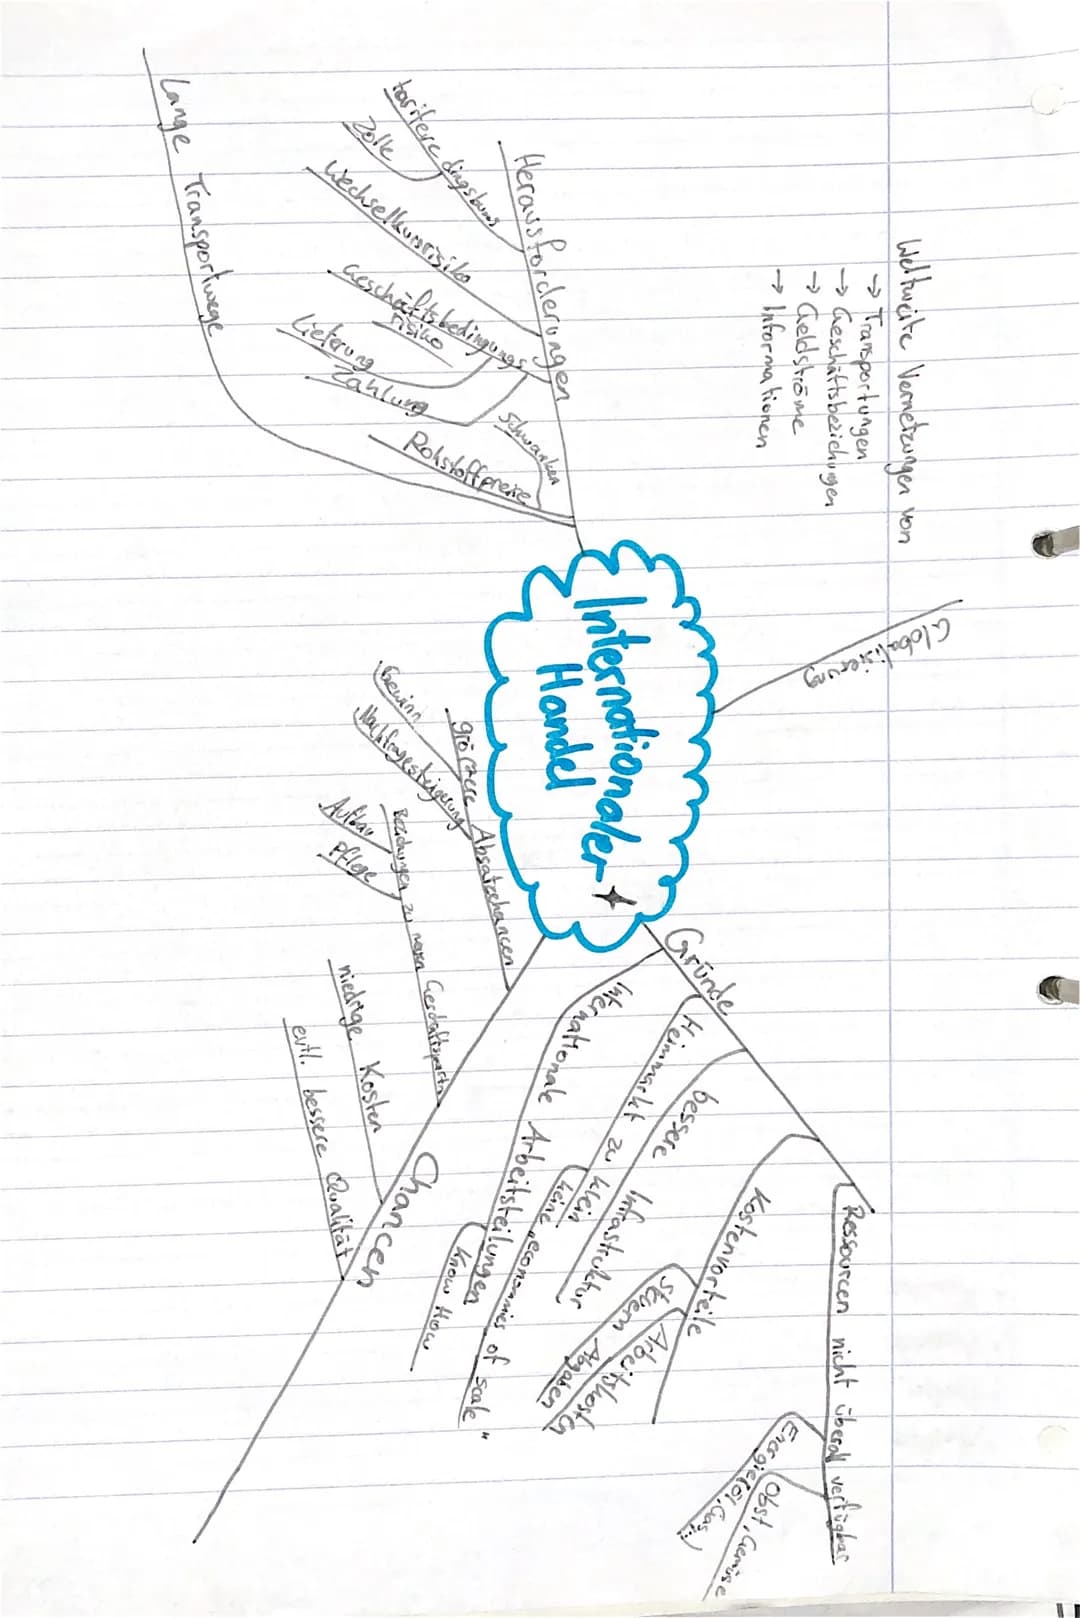 Weltweite Vernetzungen von
→ Transportungen
→ Geschäftsbeziehungen
→ Geldströme
→ Informationen
Globalisierung
Internationaler
Handel
Herausforderungen
tarifere dingsbums
Zölle
Wechselkursrisiko
Geschäftsbedingungs
risiko
Lieferung
Zahlung
schwanken
Rohstoffpreise
Lange Transportwege
Gründe
Ressourcen nicht überall verfügbar
Energie (Öl, Gas, ...)
Obst, Gemüse
Kostenvorteile
Steuern Abgaben
Arbeitskosten
bessere Infrastruktur
Heimmarkt zu klein
keine "economies of scale"
Internationale Arbeitsteilungen
Know How
Chancen
größere Absatzchancen
Gewinn
Nachfragesteigerung
Beziehungen zu neuen Geschäftspartn
Aufbau
Pflege
niedrige Kosten
evtl. bessere Qualität